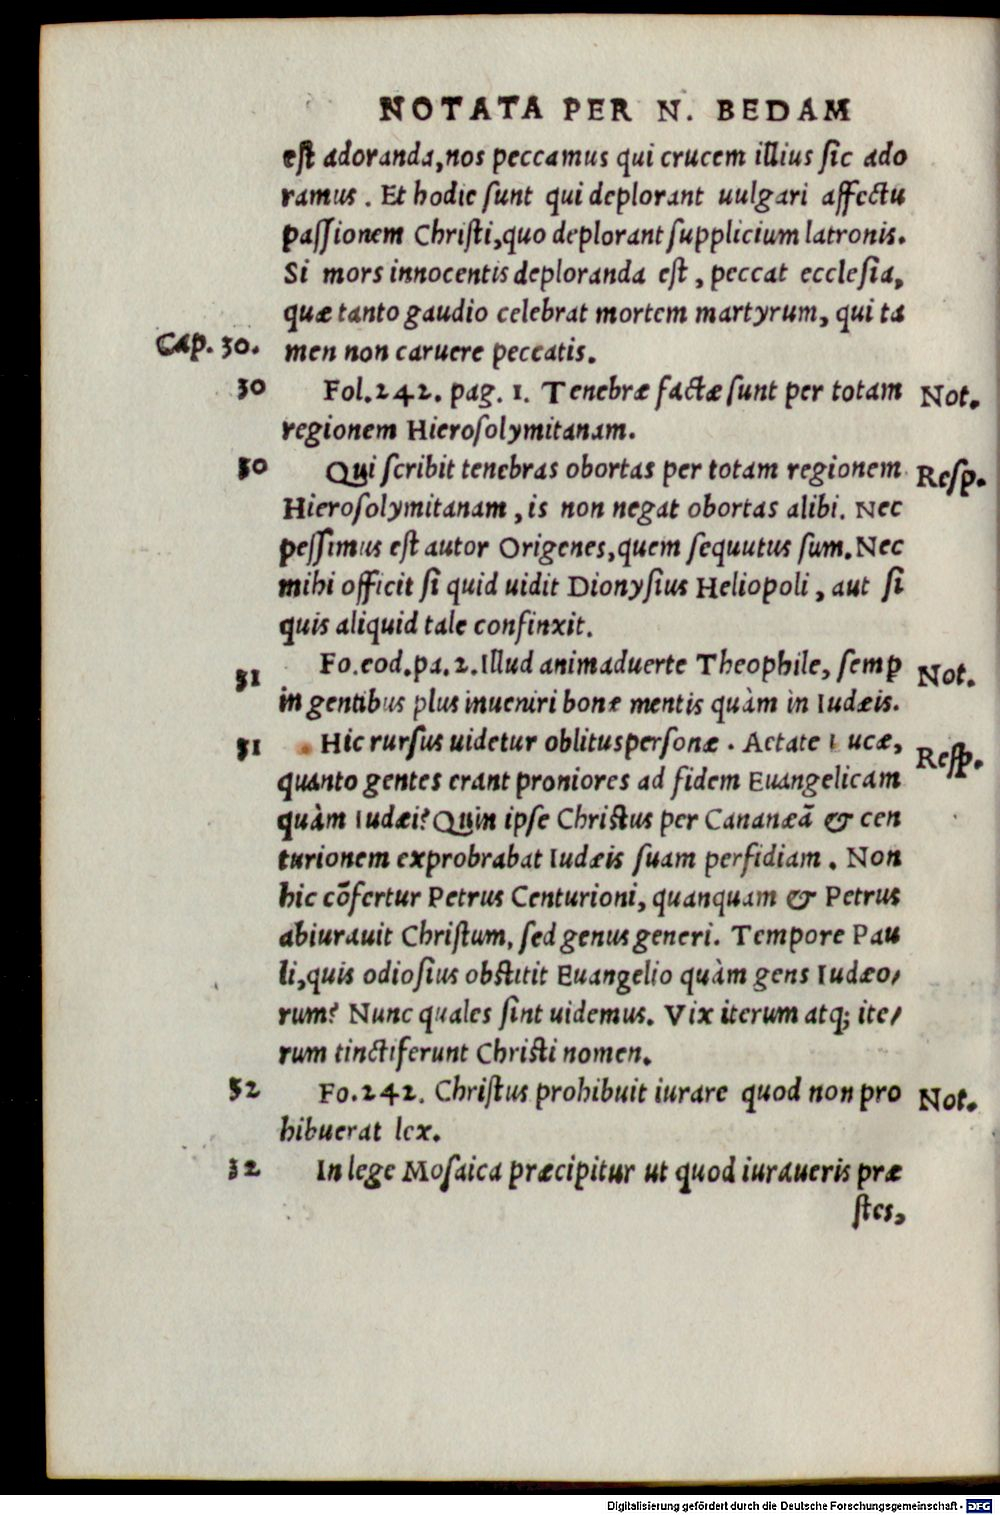 NOTATA PER N. BEDAM
est adoranda, nos peccamus qui crucem illius sic ado
ramus. Et hodie sunt qui deplorant uulgari affectu
passionem Christi, quo deplorant supplicium latronis.
Si mors innocentis deploranda est, peccat ecclesia,
quæ tanto gaudio celebrat mortem martyrum, qui ta
Cap. 30. men non caruere peccatis.
30 Fol. 242. pag. 1. Tenebræ factæ sunt per totam Not.
regionem Hierosolymitanam.
30 Qui scribit tenebras obortas per totam regionem Resp.
Hierosolymitanam, is non negat obortas alibi. Nec
pessimus est autor Origenes, quem sequutus sum. Nec
mihi officit si quid uidit Dionysius Heliopoli, aut si
quis aliquid tale confinxit.
31 Fo. eod. pa. 2. Illud animaduerte Theophile, semꝑ Not.
in gentibus plus inueniri bonæ mentis quàm in Iudæis.
31 Hic rursus uidetur oblitus personæ. Aetate Lucæ, Resp.
quanto gentes erant proniores ad fidem Euangelicam
quàm Iudæi? Quin ipse Christus per Cananæã & cen
turionem exprobrabat Iudæis suam perfidiam. Non
hic cõfertur Petrus Centurioni, quanquam & Petrus
abiurauit Christum, sed genus generi. Tempore Pau
li, quis odiosius obstitit Euangelio quàm gens Iudæo/
rum? Nunc quales sint uidemus. Vix iterum atq; ite/
rum tinctiferunt Christi nomen.
32 Fo. 242. Christus prohibuit iurare quod non pro Not.
hibuerat lex.
32 In lege Mosaica præcipitur ut quod iuraueris præ
stes,
Digitalisierung gefördert durch die Deutsche Forschungsgemeinschaft - DFG